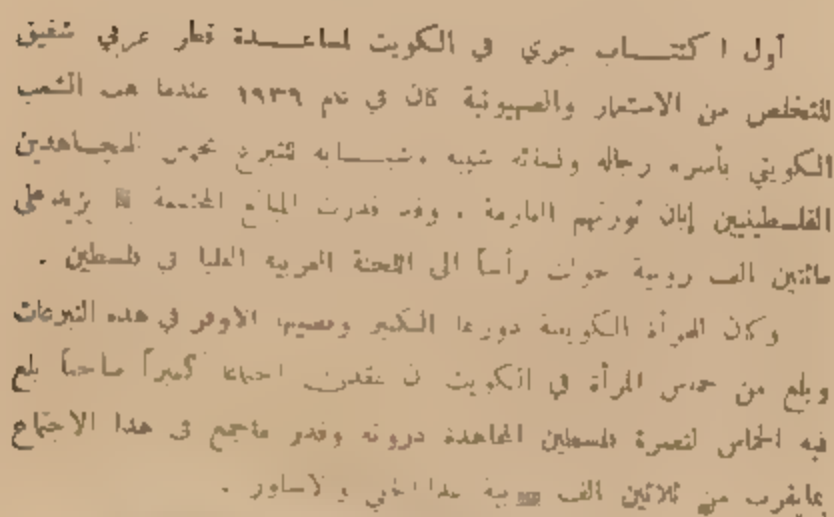 أول اكتتاب جرى في الكويت لمساعدة قطر عربي شقيق
للتخلص من الاستعمار والصهيونية كان في عام ١٩٣٩ عندما هب الشعب
الكويتي بأسره رجاله ونسائه شيبه وشبابه للتبرع المجاهدين
الفلسطينيين إبان ثورتهم . وقد قدرت المبالغ يزيد على
مائتين الف روبية حولت رأساً الى اللجنة العربية العليا في فلسطين .
وكان المرأة الكويتية دورها الكبير ونصيبها الاوفر في هذه التبرعات
وبلغ من حماس المرأة في الكويت ان عقدت اجتماعا كبيراً بلغ
فيه الحماس لنصرة فلسطين المجاهدة ذروته وقدر ماجمع في هذا الاجتماع
بمايقرب من ثلاثين الف روبية عدا الحلي والاساور .